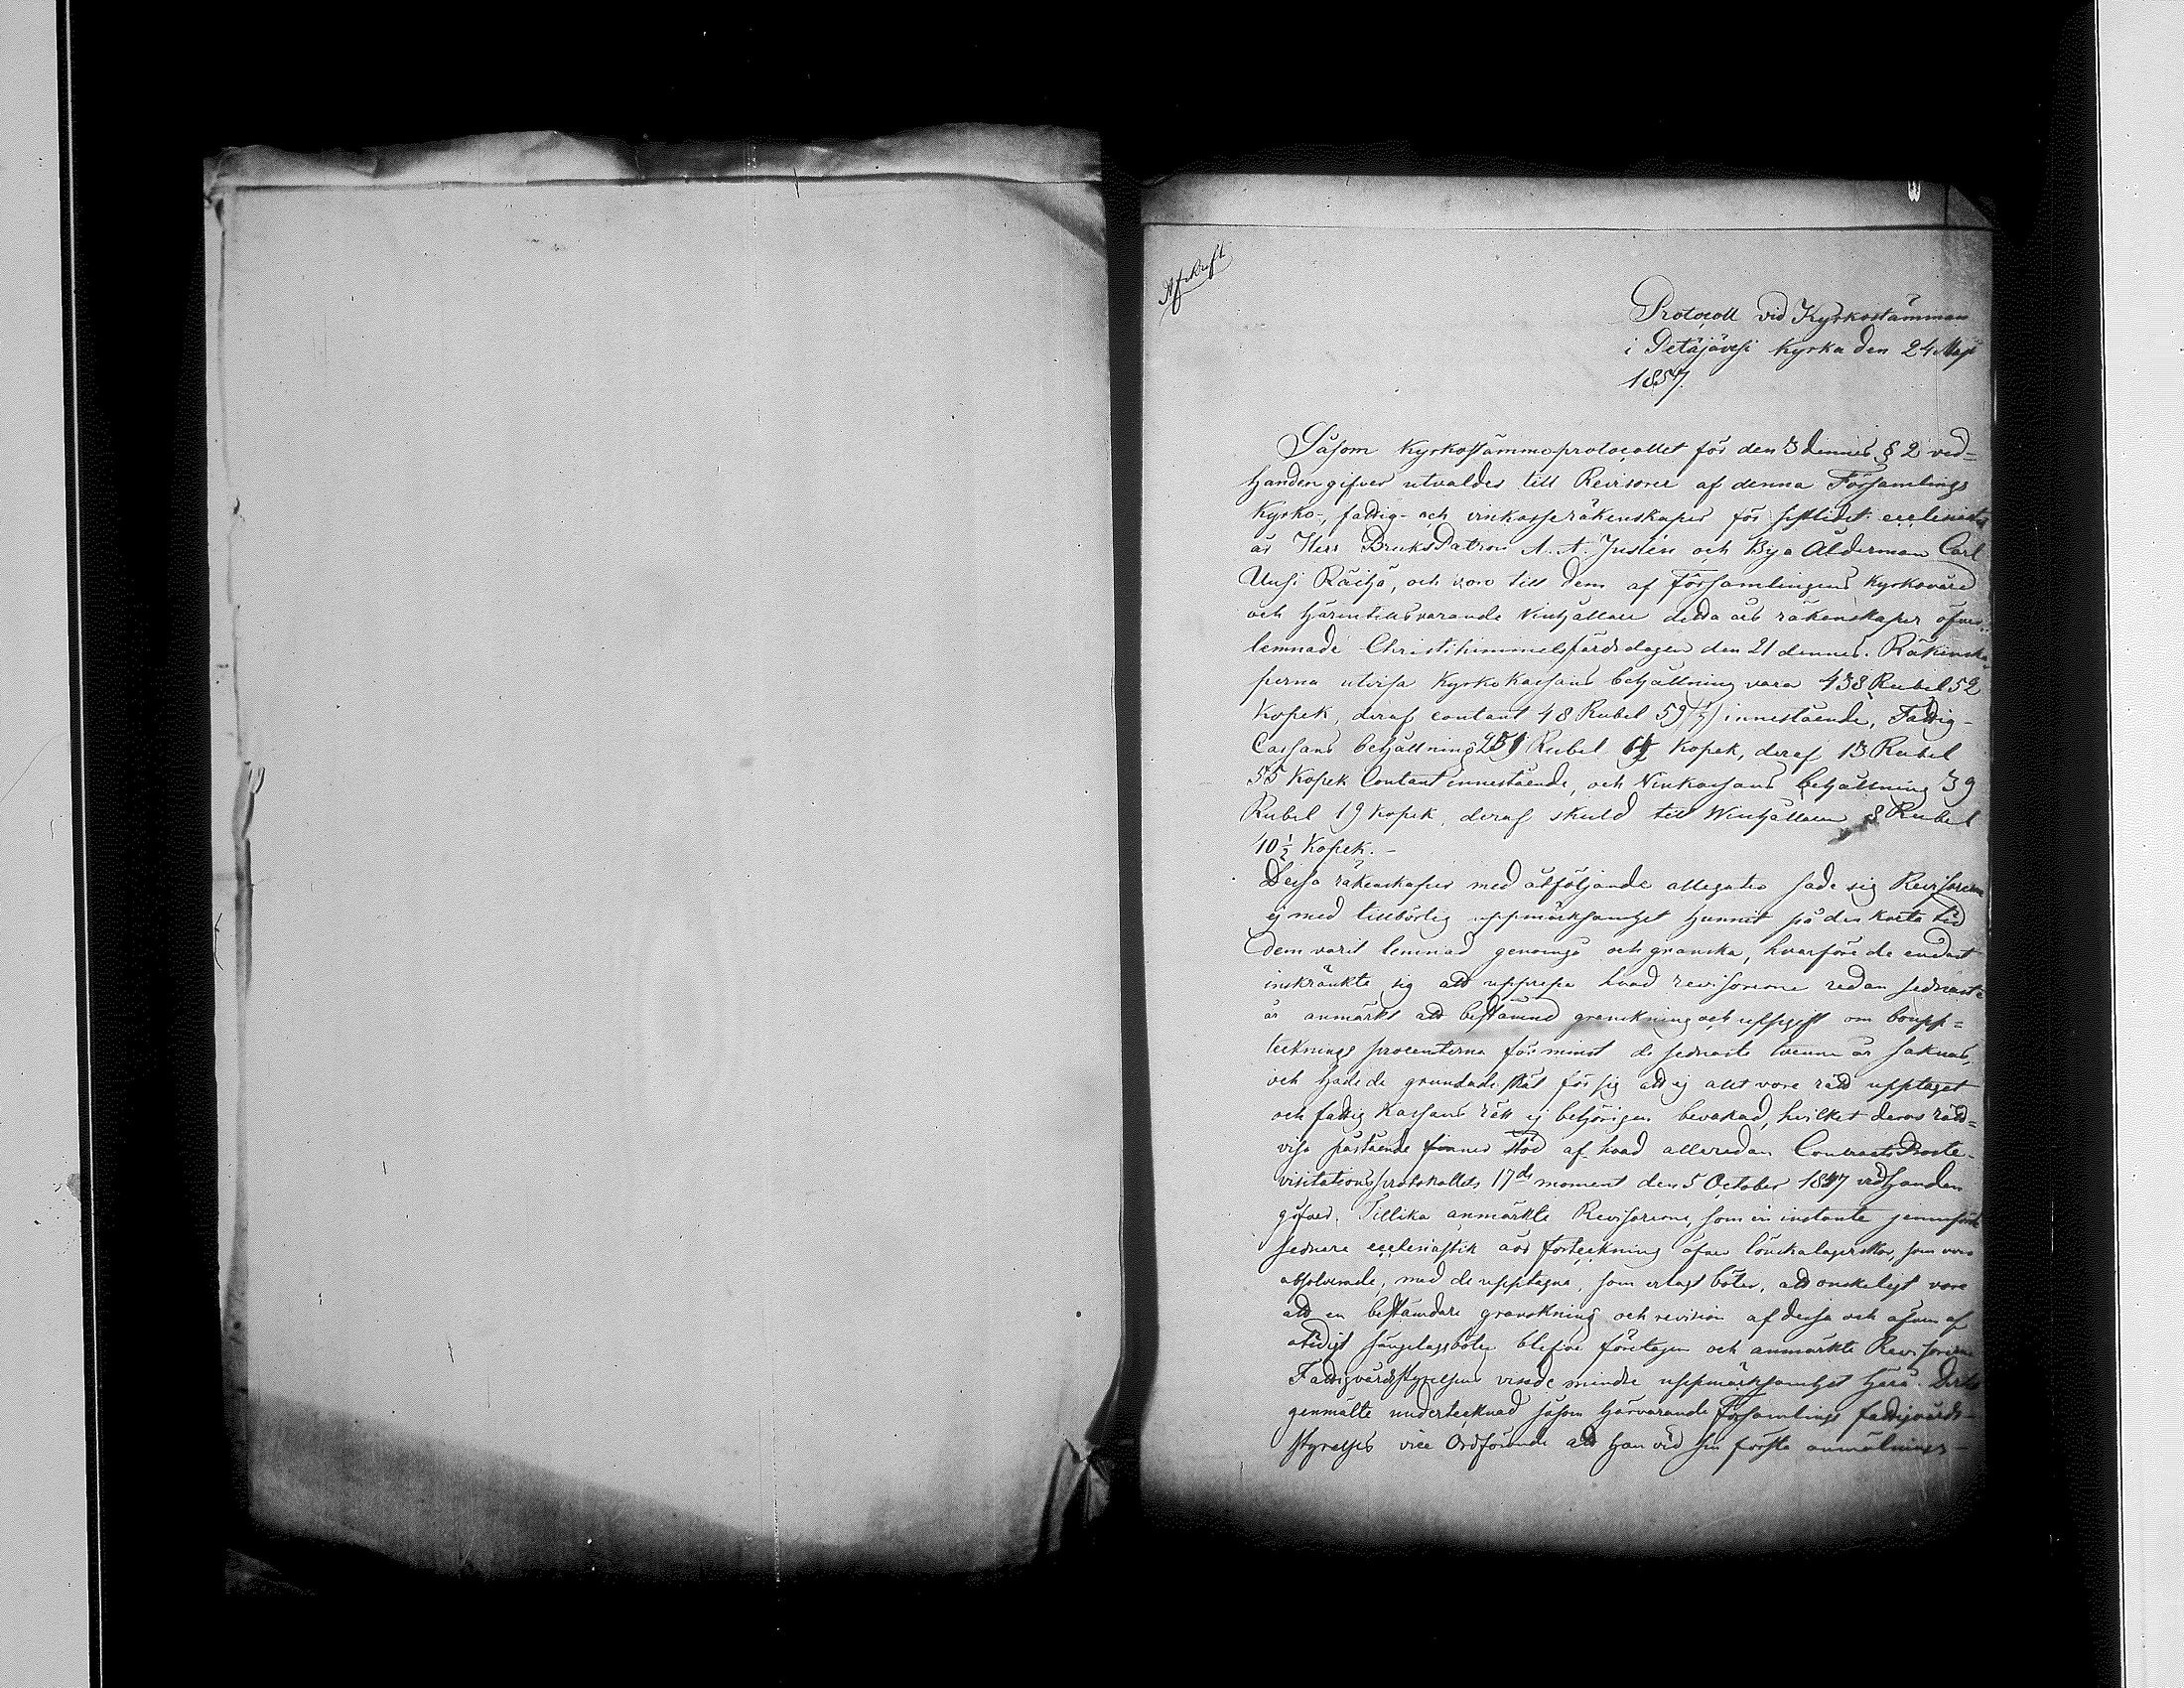 Afskrift
Protocoll vid Kyrkostämman
i Petäjävesi Kyrka den 24 Maji
1857.
Såsom Kyrkostämmoprotocollet för den 3 dennes § 2 ved-
handen gifver utvaldes till Revisorer af denna Församlings
Kyrko-, fattig- och vinkasse räkenskaper för sistlidet ecclesiastik
år Herr BruksPatron A. A. Juslén och Bya Ålderman Carl
Uusi Räihä, och voro till dem af Församlingens Kyrkovärd
och härintills varande Vinhållare detta års räkenskaper öfver-
lemnade Christihimmelsfärdsdagen den 21 dennes. Räkenska-
perna utvisa Kyrko Kassans behållning vara 438 Rubel 52
Kopek, deraf contant 48 Rubel 59 innestående, Fattig-
Cassans behållning Rubel Kopek, deraf 13 Rubel
55 Kopek Contant innestående, och Vinkassans behållning 39
Rubel 19 Kopek, deraf skuld till Vinhållaren 8 Rubel
10 ½ Kopek. -
Dessa räkenskaper med åtföljande allegater sade sig Revisorerne
ej med tillbörlig uppmärksamhet hunnit på den korta tid
dem varit lemnad genomgå och granska, hvarföre de endast
inskränkte sig att upprepa hvad revisorerne redan sednaste
år anmärkt att bestämd granskning och uppgift om boupp-
tecknings procenterna för minst de sednaste tvenne år saknas,
och hade de grundade skäl för sig att ej allt vore rätt upptaget
och fattig Kassans rätt ej behörigen bevakad, hvilket deras rätt-
visa påstående finner stöd af hvad allaredan ContractsProste-
visitationsprotokollets 17de moment den 5 October 1847 vidhanden
gifver. Tillika anmärkte Revisorerne, som in instante jemnförde
sednere ecclesiastik års förteckning öfver lönskalägerskor, som voro
absolverade, med de upptagna, som erlagt böter, att önskeligt vore
att en bestämdare granskning och revision af dessa och äfven af
otidigt sängelagsböter blefve företagen och anmärkte Revisorerne
Fattigvårdsstyrelsens visade mindre uppmärksamhet häri. Dertill
genmälte undertecknad såsom härvarande Församlings fattigvårds-
styrelses vice Ordförande att han vid sin första anmälnings-